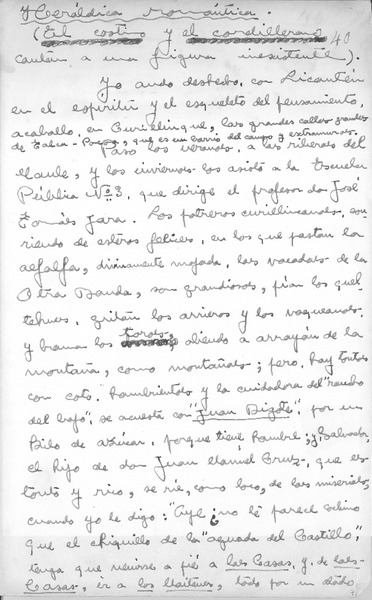 Heráldica romántica.
(El costino y el cordillerano 40
cantan a una figura inexistente).
Yo ando desbedo, con Licantén
en el espíritu y el esqueleto del pensamiento,
acaballo, en Curillinque, las grandes calles grandes
de Talca-Poeza, que es un barrio del campo y extramuros.
Paso los veranos, a las riberas del
Maule, y los inviernos los asisto a la Escuela
Pública No. 3, que dirige el profesor don José
Tomás Jara. Los potreros curillincanos, son-
riendo de esteros felices, en los que pastan la
alfalfa, divinamente mojada, las vacadas de la
Otra Banda, son grandiosos, pían los quel-
tehues, gritan los arrieros y los vaqueanos,
y braman los toros, oliendo a arrayán de la
montaña, como montañas; pero, hay tontos
con coto, hambrientos y la cuidadora del "rancho
del bajo", se acuesta con "Juan Bigote", por un
kilo de azúcar, porque tiene hambre; y, Salvador,
el hijo de don Juan Manuel Cruz, que es
tonto y rico, se ríe, como loco, de las miserias,
cuando yo le digo: "Oye ¿no te parece cochino
que el chiquillo de la "aguada del Castillo",
tenga que venirse a pié a las Casas, y, de las
Casas, ir a los Maitenes, todo por un dado